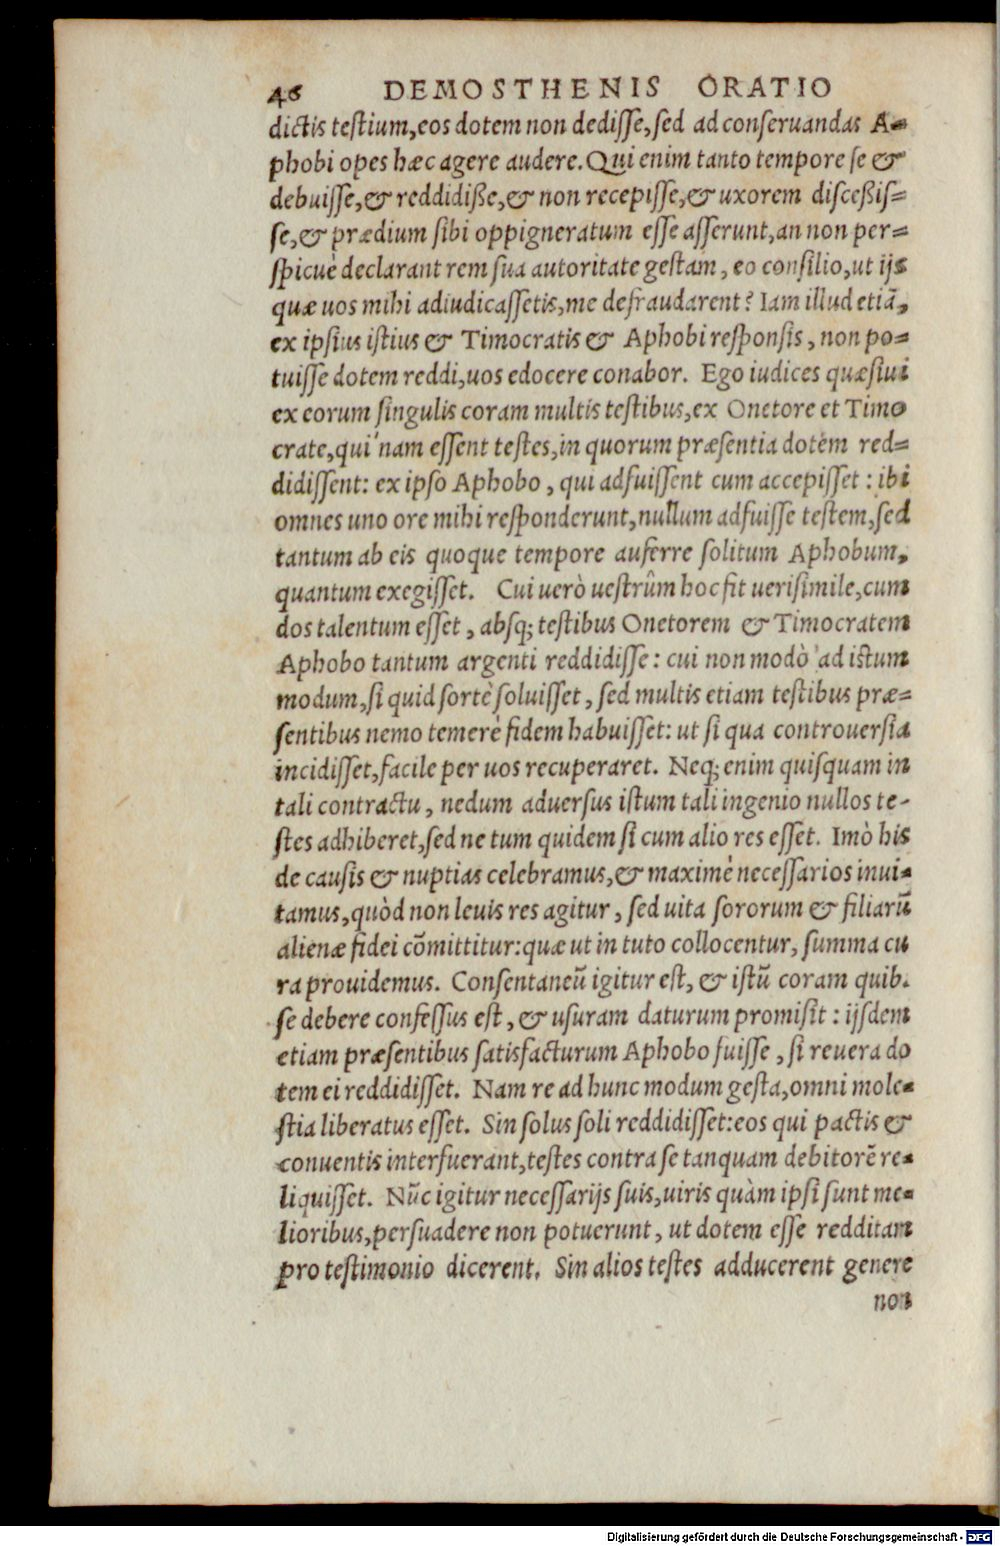 46 DEMOSTHENIS ORATIO
dictis testium, eos dotem non dedisse, sed ad conseruandas A-
phobi opes hæc agere audere. Qui enim tanto tempore se &
debuisse, & reddidiße, & non recepisse, & uxorem disceßis-
se, & prædium sibi oppigneratum esse asserunt, an non per-
spicuè declarant rem sua autoritate gestam, eo consilio, ut ijs
quæ uos mihi adiudicassetis, me defraudarent? Iam illud etiã,
ex ipsius istius & Timocratis & Aphobi responsis, non po-
tuisse dotem reddi, uos edocere conabor. Ego iudices quæsiui
ex eorum singulis coram multis testibus, ex Onetore et Timo
crate, qui nam essent testes, in quorum præsentia dotem red-
didissent: ex ipso Aphobo, qui adfuissent cum accepisset: ibi
omnes uno ore mihi responderunt, nullum adfuisse testem, sed
tantum ab eis quoque tempore auferre solitum Aphobum,
quantum exegisset. Cui uerò uestrûm hoc fit uerisimile, cum
dos talentum esset, absq; testibus Onetorem & Timocratem
Aphobo tantum argenti reddidisse: cui non modò ad istum
modum, si quid fortè soluisset, sed multis etiam testibus præ-
sentibus nemo temerè fidem habuisset: ut si qua controuersia
incidisset, facile per uos recuperaret. Neq; enim quisquam in
tali contractu, nedum aduersus istum tali ingenio nullos te-
stes adhiberet, sed ne tum quidem si cum alio res esset. Imò his
de causis & nuptias celebramus, & maximè necessarios inui-
tamus, quòd non leuis res agitur, sed uita sororum & filiarũ
alienæ fidei cõmittitur: quæ ut in tuto collocentur, summa cu
ra prouidemus. Consentaneũ igitur est, & istũ coram quib.
se debere confessus est, & usuram daturum promisit: ijsdem
etiam præsentibus satisfacturum Aphobo fuisse, si reuera do
tem ei reddidisset. Nam re ad hunc modum gesta, omni mole-
stia liberatus esset. Sin solus soli reddidisset: eos qui pactis &
conuentis interfuerant, testes contra se tanquam debitorẽ re-
liquisset. Nũc igitur necessarijs suis, uiris quàm ipsi sunt me-
lioribus, persuadere non potuerunt, ut dotem esse redditam
pro testimonio dicerent. Sin alios testes adducerent genere
non
Digitalisierung gefördert durch die Deutsche Forschungsgemeinschaft - DFG